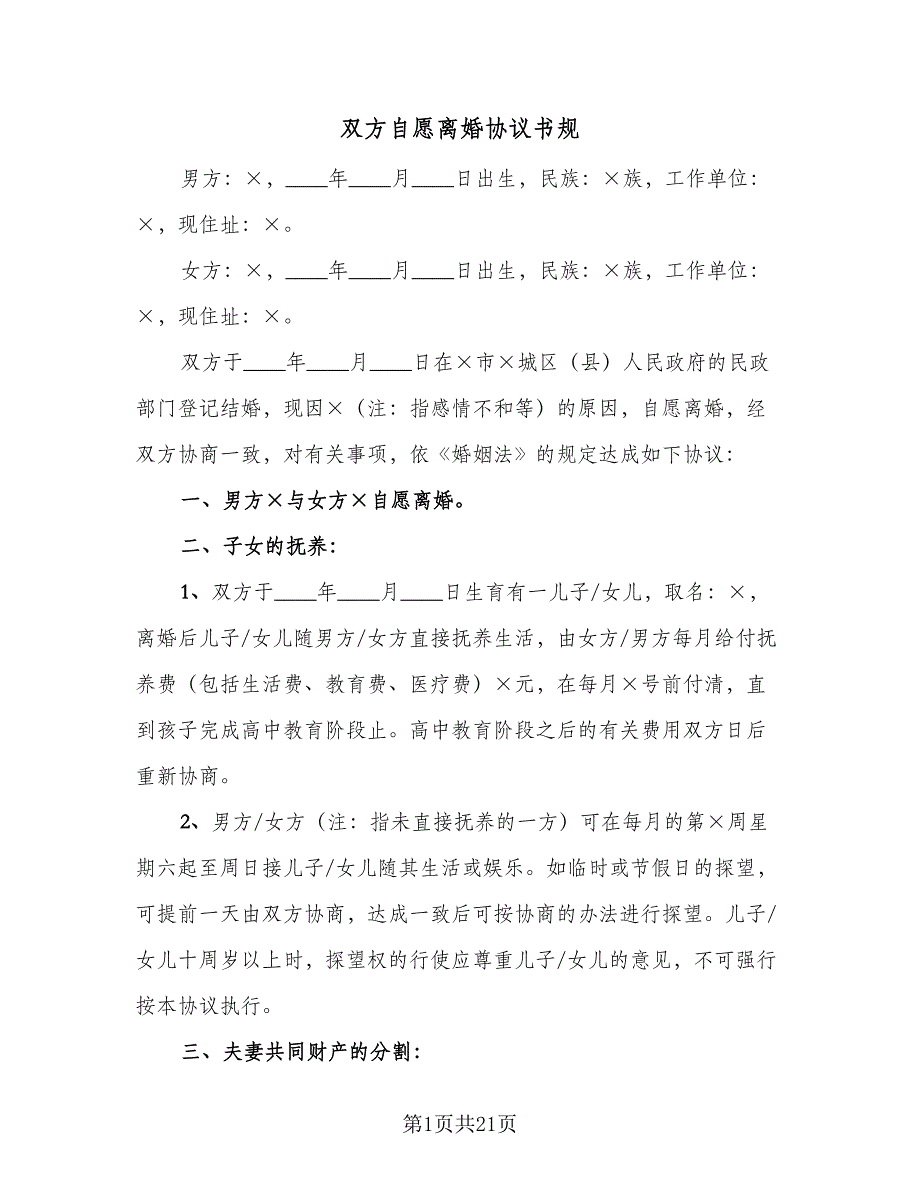 双方自愿离婚协议书规
男方：×，____年____月____日出生，民族：×族，工作单位：
×，现住址：×。
女方：×，____年____月____日出生，民族：×族，工作单位：
×，现住址：×。
双方于____年____月____日在×市×城区（县）人民政府的民政
部门登记结婚，现因×（注：指感情不和等）的原因，自愿离婚，经
双方协商一致，对有关事项，依《婚姻法》的规定达成如下协议：
一、男方×与女方×自愿离婚。
二、子女的抚养：
1、双方于____年____月____日生育有一儿子/女儿，取名：×，
离婚后儿子/女儿随男方/女方直接抚养生活，由女方/男方每月给付抚
养费（包括生活费、教育费、医疗费）×元，在每月×号前付清，直
到孩子完成高中教育阶段止。高中教育阶段之后的有关费用双方日后
重新协商。
2、男方/女方（注：指未直接抚养的一方）可在每月的第×周星
期六起至周日接儿子/女儿随其生活或娱乐。如临时或节假日的探望，
可提前一天由双方协商，达成一致后可按协商的办法进行探望。儿子/
女儿十周岁以上时，探望权的行使应尊重儿子/女儿的意见，不可强行
按本协议执行。
三、夫妻共同财产的分割：
第1页共21页